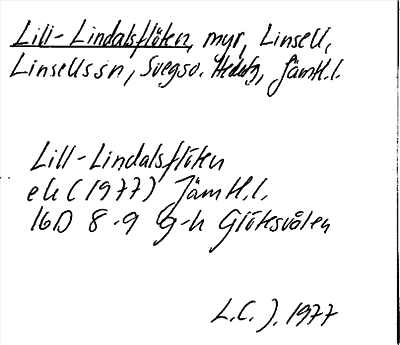 Lill-Lindalsflöten, myr, Linsell,
Linsells sn, Svegs o. Heds tg, Jämtl.l.
Lill-Lindalsflöten
ek (1977) Jämtl.l.
16D 8-9 g-h Glötesvålen
L.C.J. 1977